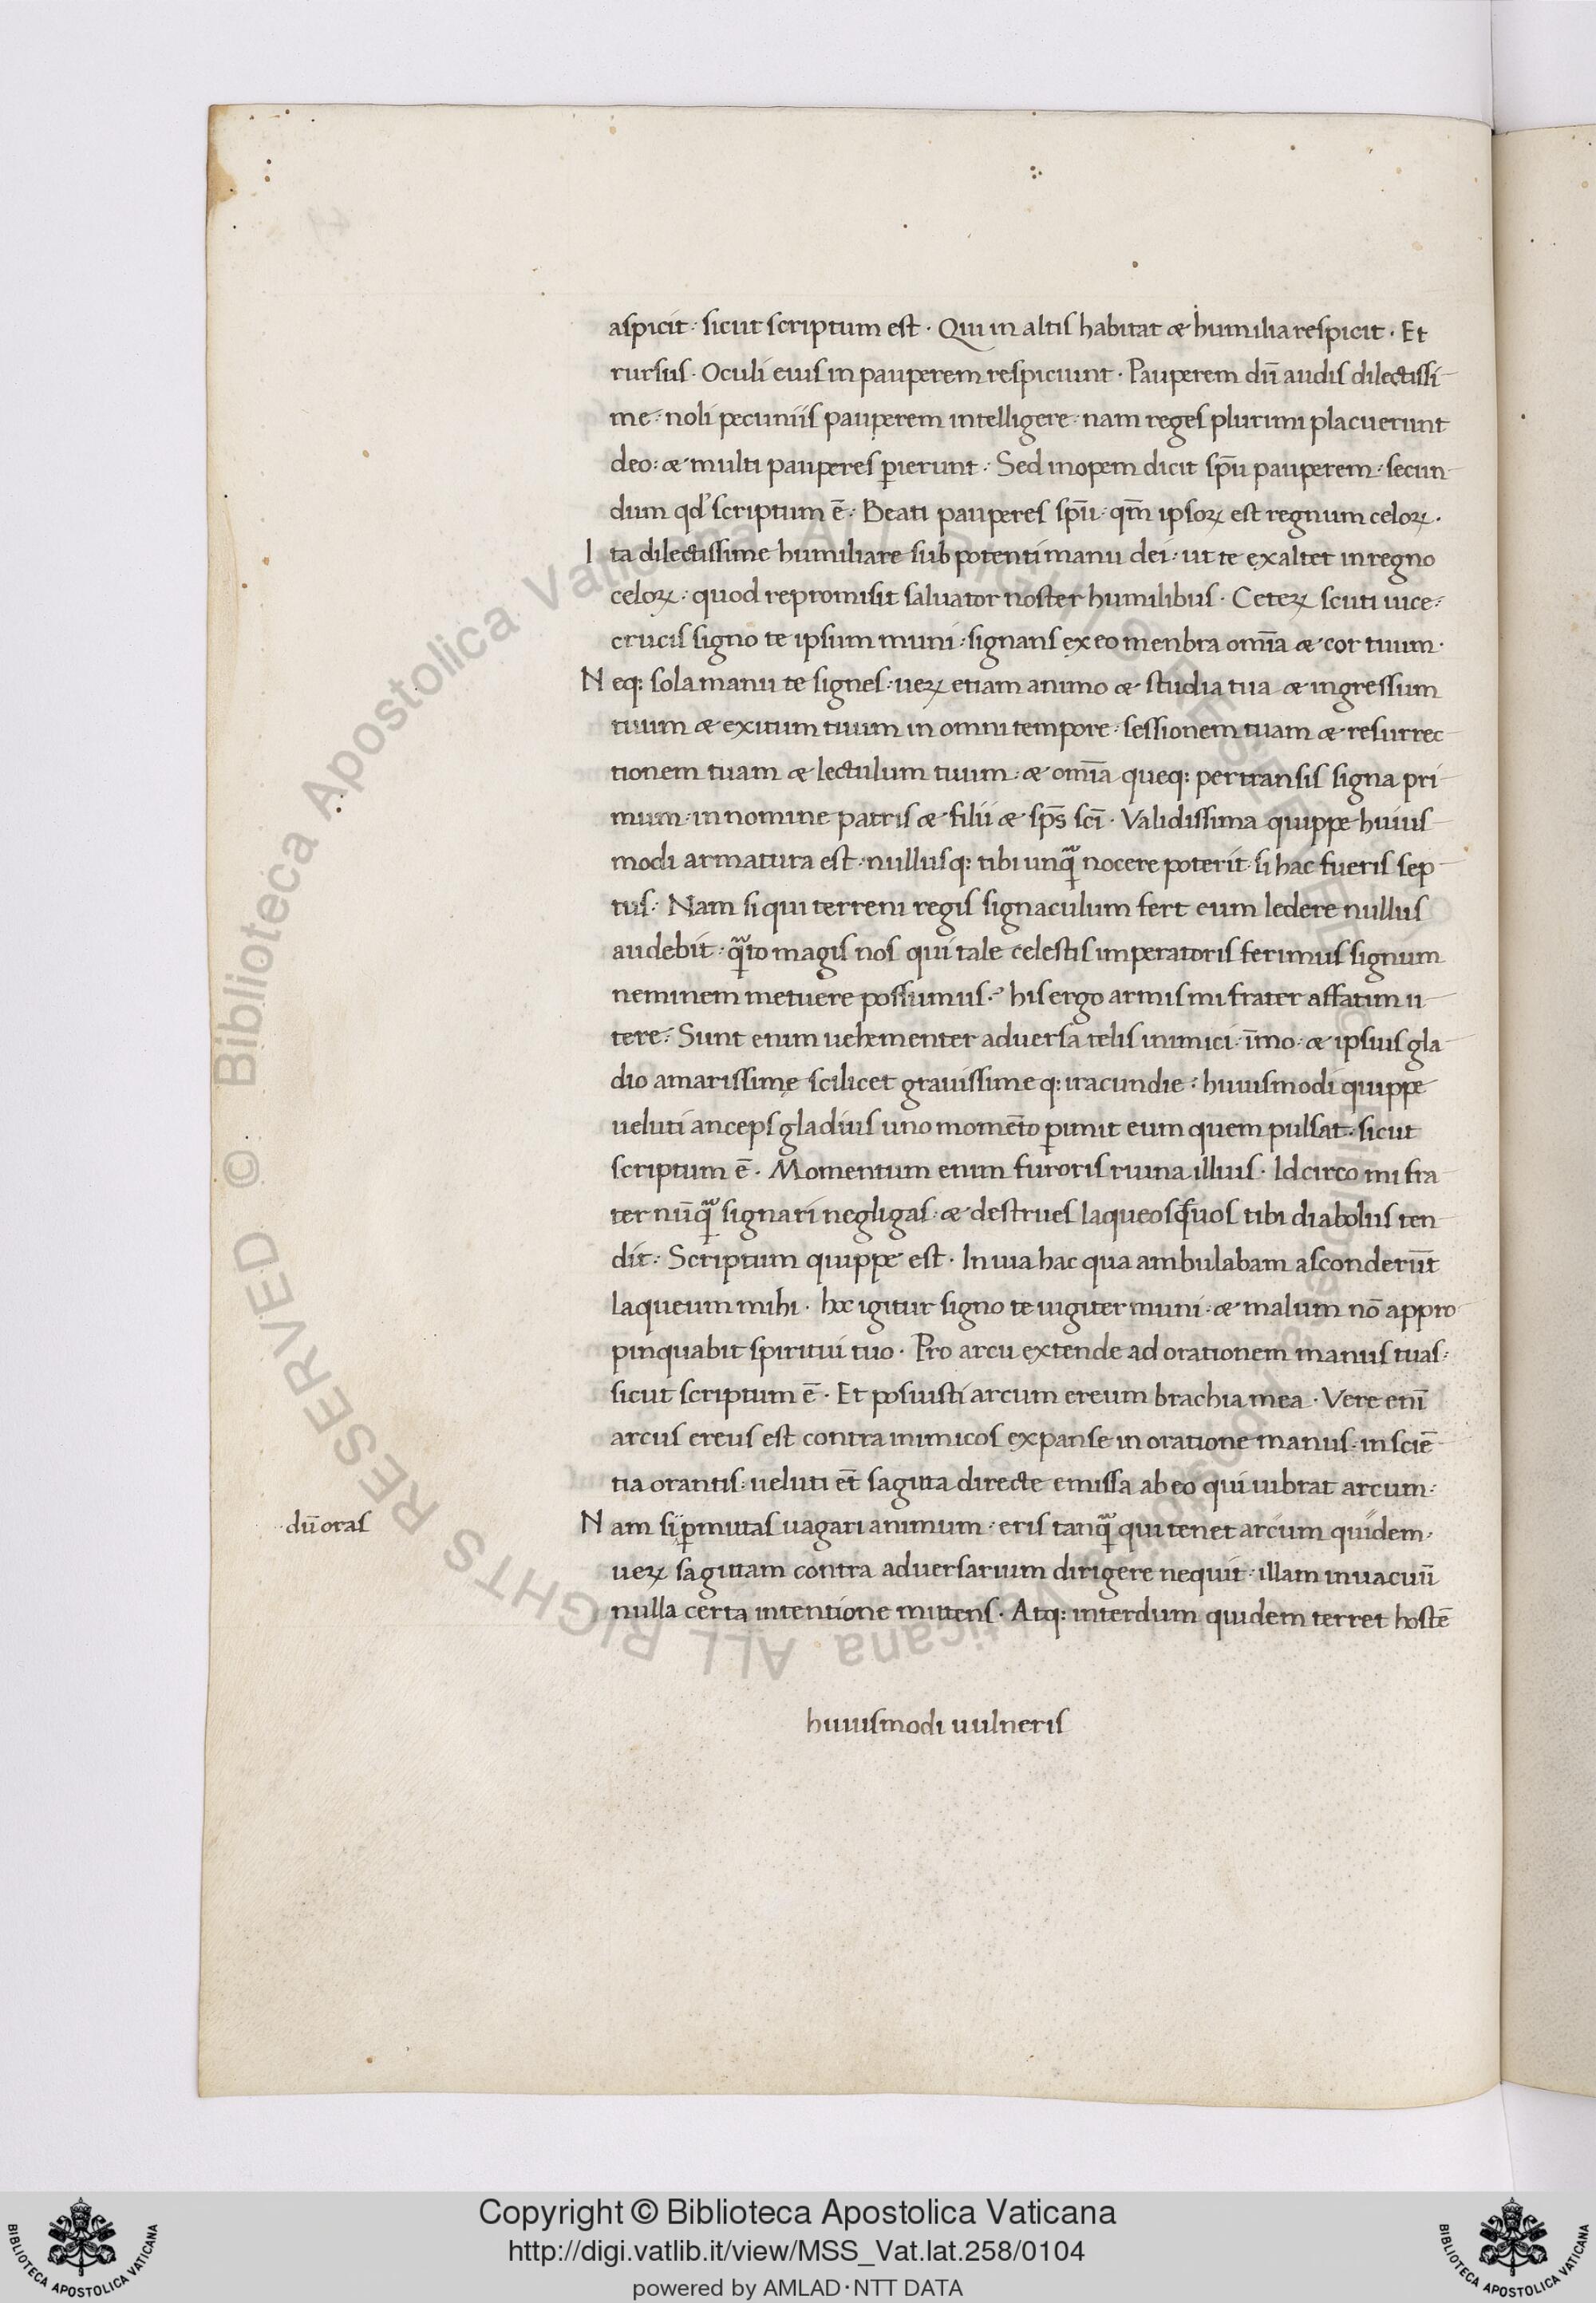 aspicit: sicut scriptum est · Qui in altis habitat & humilia respicit · Et
rursus · Oculi eius in pauperem respiciunt · Pauperem dū audis dilectissi-
me: noli pecuniis pauperem intelligere: nam reges plurimi placuerunt
deo: & multi pauperes ꝑierunt: Sed inopem dicit sp̄u pauperem: secun-
dum qd' scriptum ē: Beati pauperes sp̄u: qm̄ ipsoꝝ est regnum celoꝝ.
Ita dilectissime humiliare sub potenti manu dei: ut te exaltet in regno
celoꝝ: quod repromisit saluator noster humilibus · Ceteꝝ scuti uice:
crucis signo te ipsum muni: signans ex eo menbra om̄ia & cor tuum·
Neq: sola manu te signes: ueꝝ etiam animo & studia tua & ingressum
tuum & exitum tuum in omni tempore: sessionem tuam & resurrec-
tionem tuam & lectulum tuum: & om̄ia queq: pertransis signa pri-
mum: in nomine patris & filii & sp̄s sc̄i · Validissima quippe huius
modi armatura est: nullusq: tibi unqͣꝫ nocere poterit: si hac fueris sep-
tus: Nam si qui terreni regis signaculum fert eum ledere nullus
audebit: qͣꝫto magis nos qui tale celestis imperatoris ferimus signum
neminem metuere possumus.? his ergo armis mi frater affatim u-
tere: Sunt enim uehementer aduersa telis inimici: īmo: & ipsius gla-
dio amarissimę scilicet grauissimeq: iracundie: huiusmodi quippe
ueluti anceps gladius uno momēto ꝑimit eum quem pulsat: sicut
scriptum ē · Momentum enim furoris ruina illius · Idcirco mi fra-
ter nūqͣꝫ signari negligas: & destrues laqueos quos tibi diabolus ten
dit: Scriptum quippe est · In uia hac qua ambulabam asconderūt
laqueum mihi · hoc igitur signo te uigiter muni: & malum nō appro
pinquabit spiritui tuo · Pro arcu extende ad orationem manus tuas:
sicut scriptum ē · Et posuisti arcum ereum brachia mea · Vere enī
arcus ereus est contra inimicos expanse in oratione manus: in sciē-
tia orantis: ueluti ēt sagitta directe emissa ab eo qui uibrat arcum:
dū oras
Nam si ꝑmittas uagari animum: eris tanqͣꝫ qui tenet arcum quidem:
ueꝝ sagittam contra aduersarium dirigere nequit: illam in uacuū
nulla certa intentione mittens · Atq: interdum quidem terret hostē
huiusmodi uulneris
© Biblioteca Apostolica Vaticana ALL RIGHTS RESERVED
Copyright © Biblioteca Apostolica Vaticana
http://digi.vatlib.it/view/MSS_Vat.lat.258/0104
powered by AMLAD·NTT DATA
BIBLIOTECA APOSTOLICA VATICANA
BIBLIOTECA APOSTOLICA VATICANA